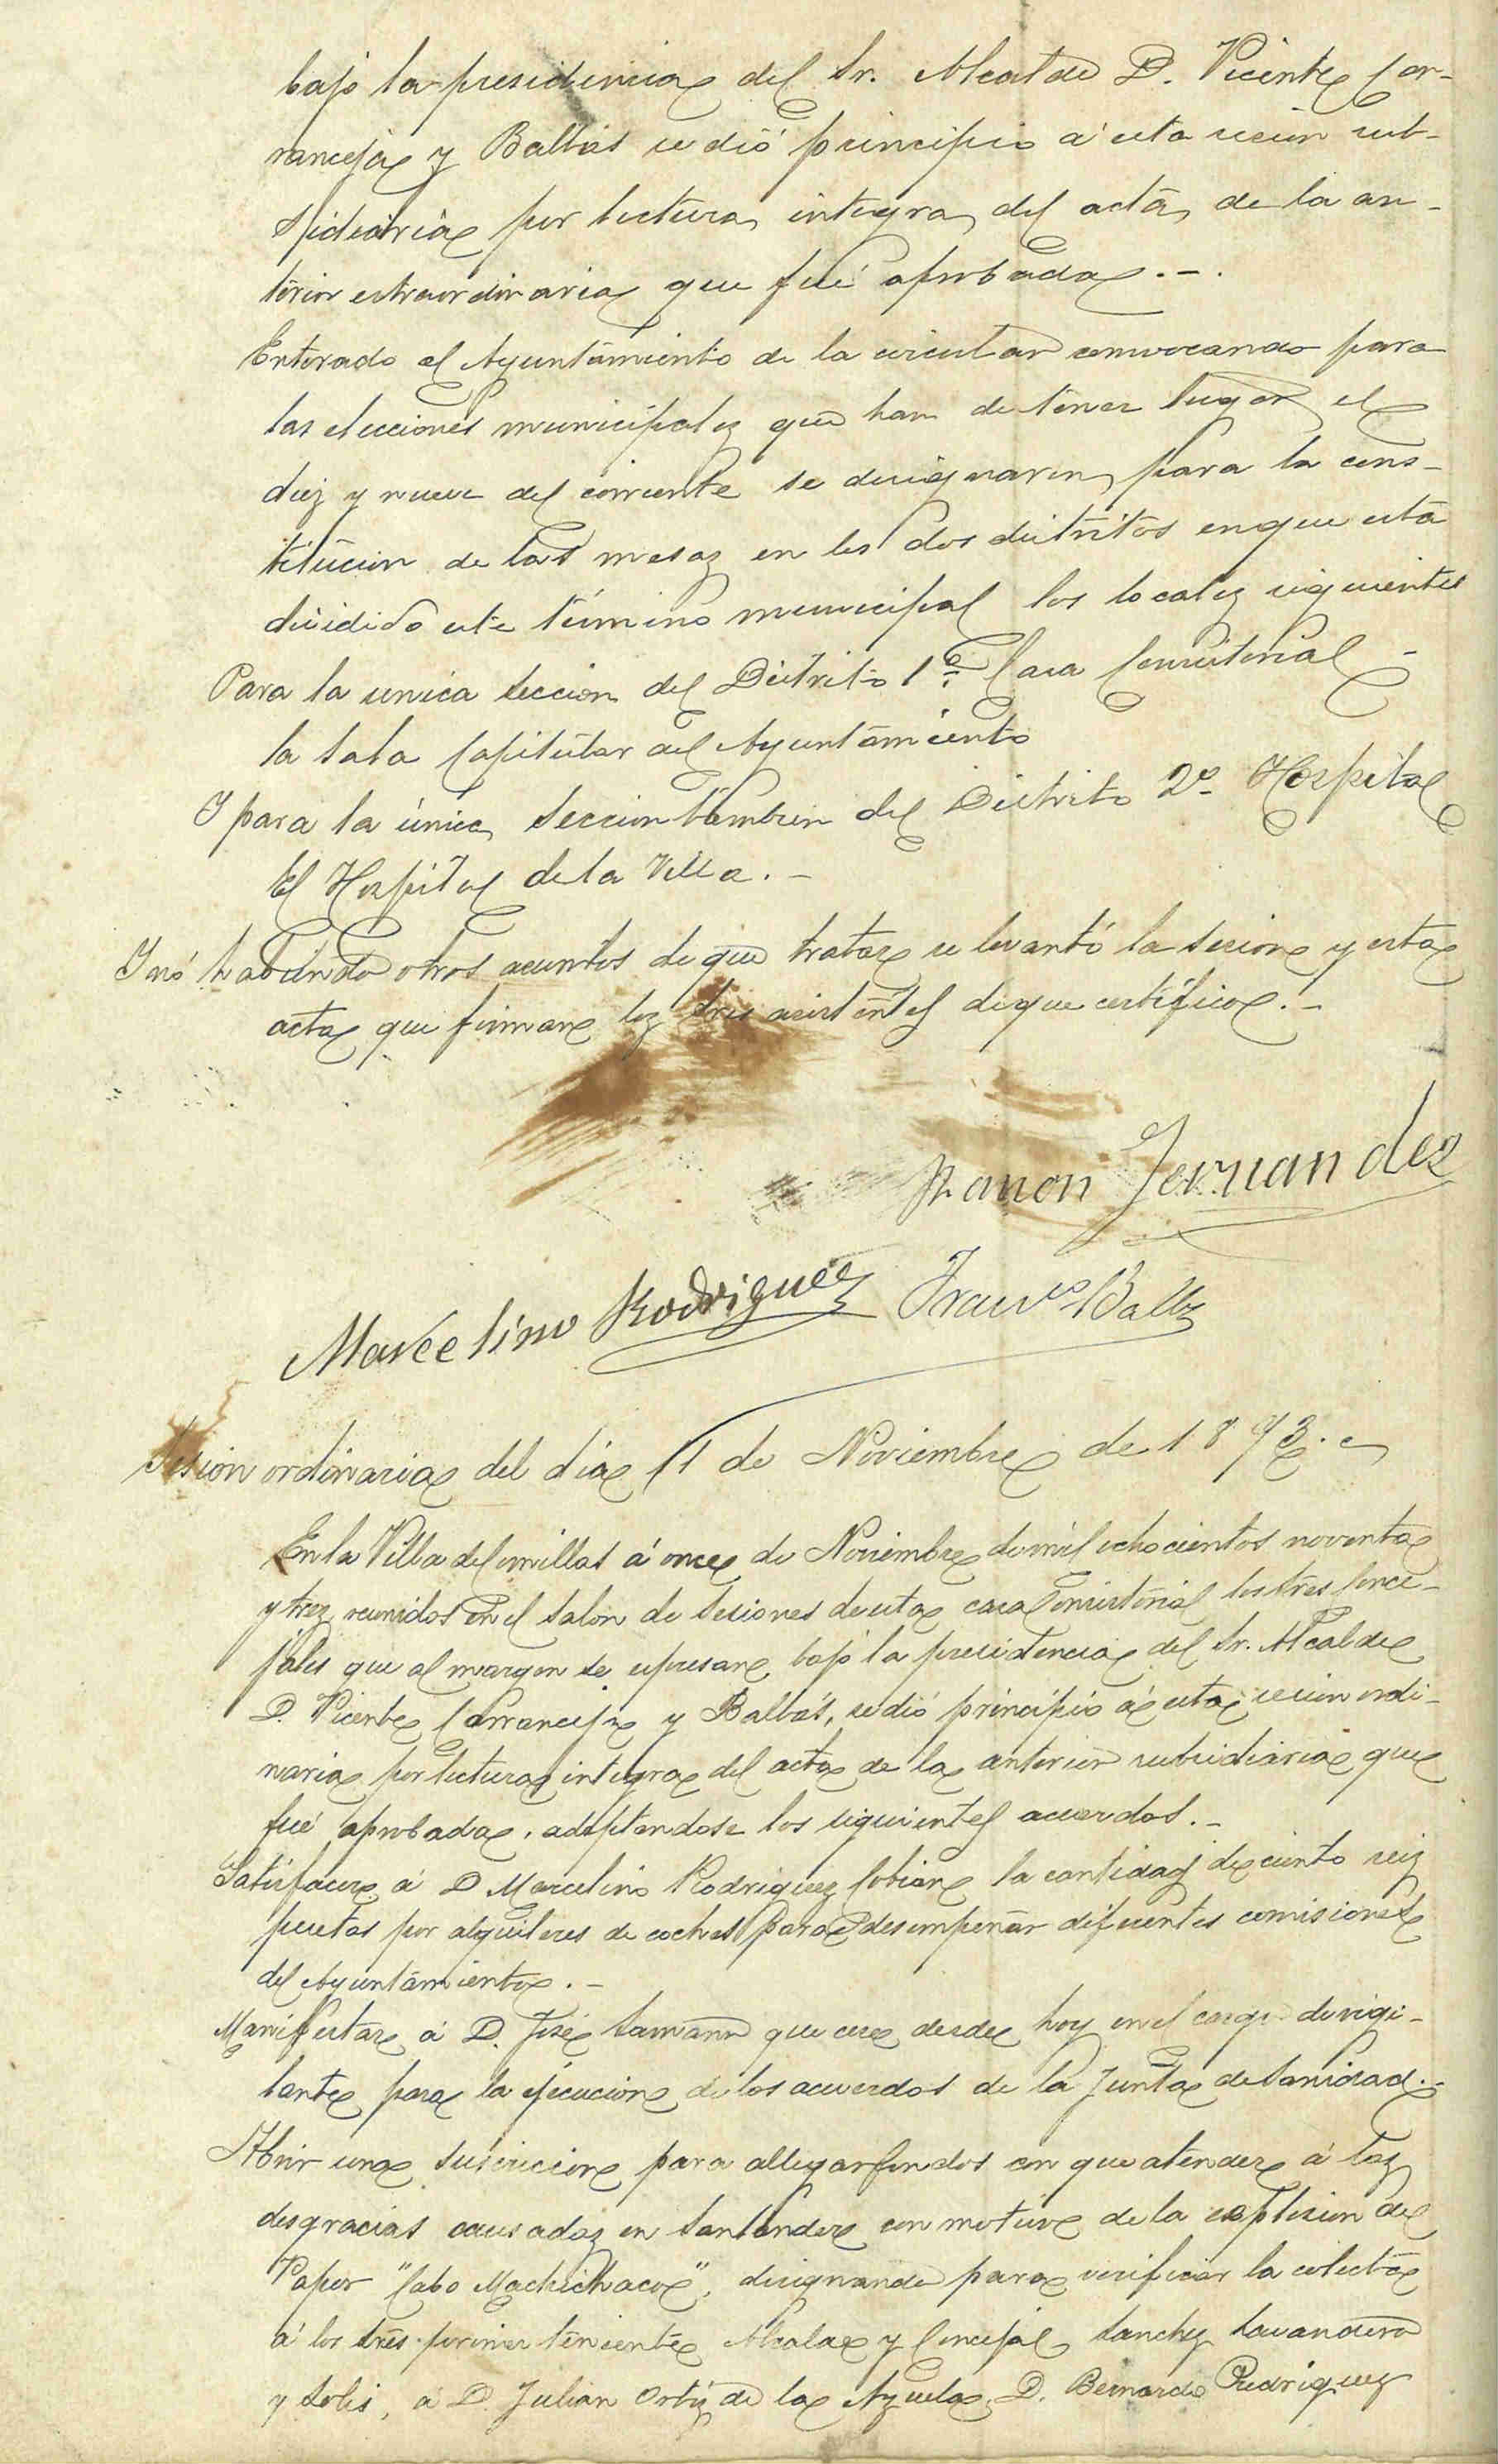 bajo la presidencia del Sr. Alcalde D. Vicente Car-
ranceja y Balbás se dió principio á esta sesion sub-
sidiaria por lectura integra del acta de la an-
terior extraordinaria que fué aprobada. -
Enterado el Ayuntamiento de la circular convocando para
las elecciones municipales que han de tener lugar el
diez y nueve del corriente se designaron para la cons-
titucion de las mesas en los dos distritos en que está
dividido este término municipal los locales siguientes
Para la unica seccion del Distrito 1º Casa Consistorial -
la Sala Capitular del Ayuntamiento
Y para la única seccion tambien del Distrito 2º Hospital
El Hospital de la Villa. -
Y nó habiendo otros asuntos de que tratar se levantó la sesion y esta
acta que firman los Sres asistentes de que certifico. -
Ramon Fernandez
Marcelino Rodriguez Franco Balbs
Sesion ordinaria del dia 11 de Noviembre de 1893.
En la Villa de Comillas á once de Noviembre de mil ochocientos noventa
y tres reunidos en el Salon de Sesiones de esta casa Consistorial los Sres Conce-
jales que al margen se espresan bajo la presidencia del Sr. Alcalde
D. Vicente Carranceja y Balbás, se dió principio á esta sesion ordi-
naria por lectura integra del acta de la anterior subsidiaria que
fué aprobada, adoptandose los siguientes acuerdos. -
Satisfacer á D Marcelino Rodriguez Cobian la cantidad de ciento seis
pesetas por alquileres de coches para desempeñar diferentes comisiones
del Ayuntamiento. -
Manifestar á D. José Samann que cese desde hoy en el cargo de vigi-
lante para la ejecucion de los acuerdos de la Junta de Sanidad. -
Abrir una suscricion para allegar fondos con que atender á las
desgracias causadas en Santander con motivo de la esplosion del
Vapor "Cabo Machichaco", designando para verificar la colecta
á los Sres primer teniente Alcalde y Concejal Sanchez Lavandero
y Solis, á D. Julian Ortiz de la Azuela, D. Bernardo Rodriguez